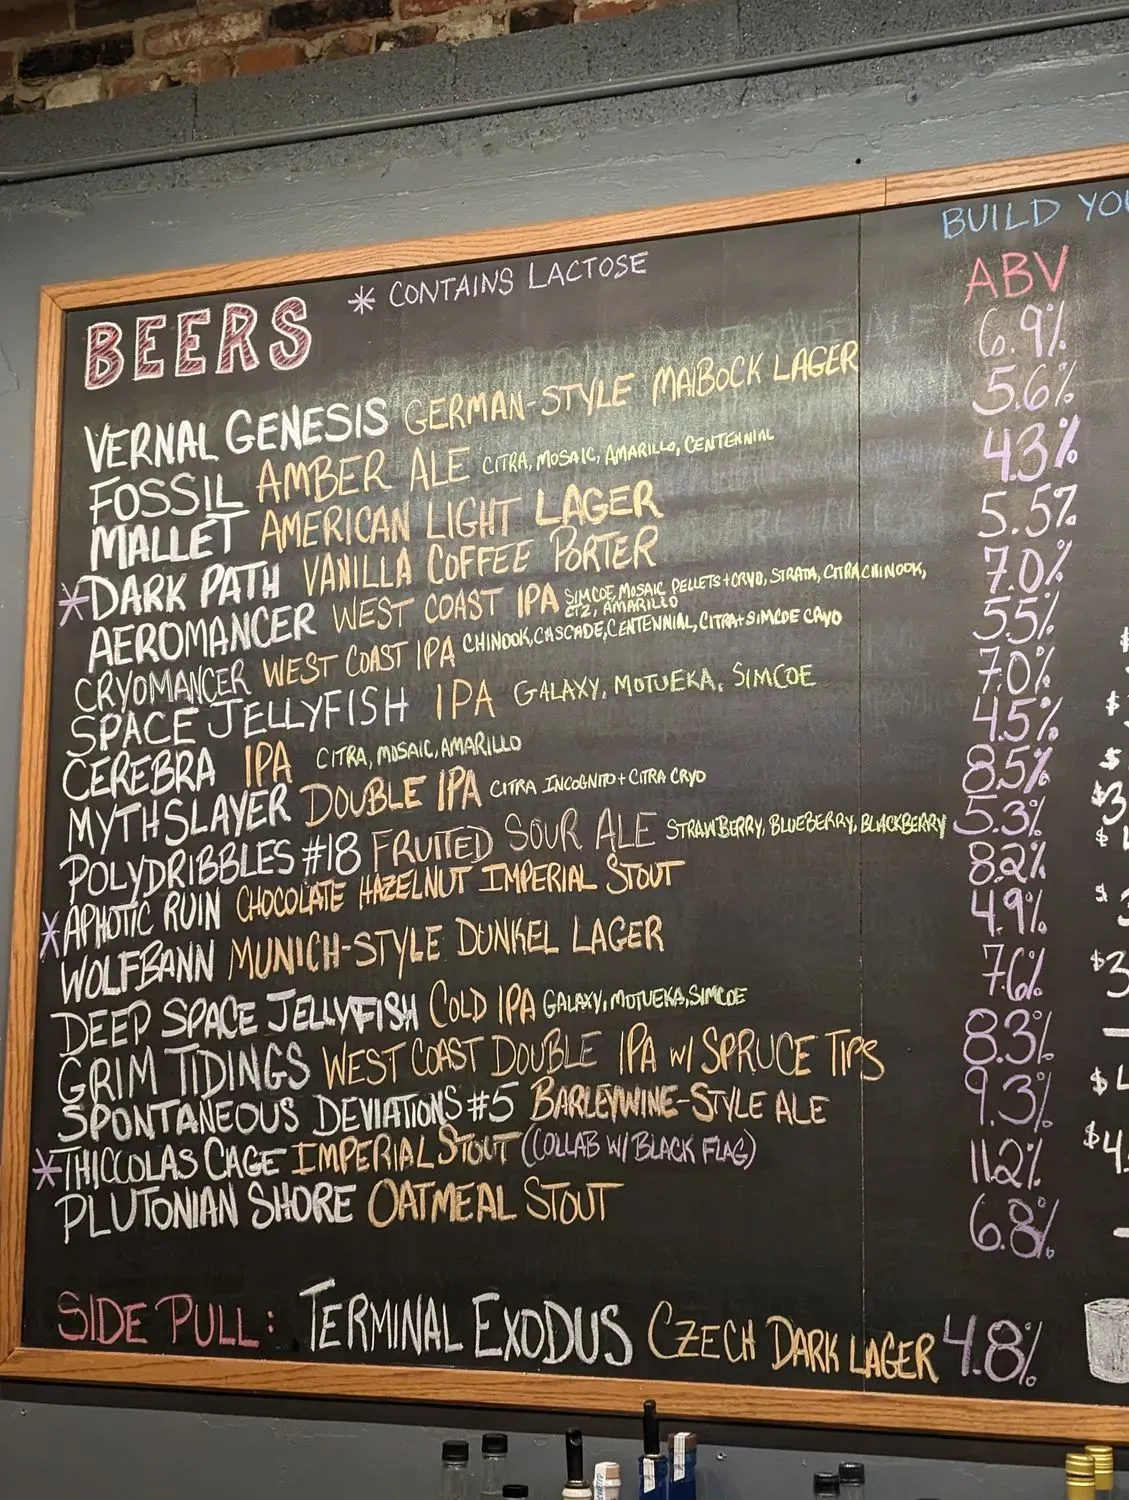 BUILD YO
BEERS * CONTAINS LACTOSE ABV
VERNAL GENESIS GERMAN-STYLE MAIBOCK LAGER 6.9%
FOSSIL AMBER ALE CITRA, MOSAIC, AMARILLO, CENTENNIAL 5.6%
MALLET AMERICAN LIGHT LAGER 4.3%
*DARK PATH VANILLA COFFEE PORTER 5.5%
AEROMANCER WEST COAST IPA SIMCOE, MOSAIC PELLETS + CRYO, STRATA, CITRA, CHINOOK, CTZ, AMARILLO 7.0%
CRYOMANCER WEST COAST IPA CHINOOK, CASCADE, CENTENNIAL, CITRA + SIMCOE CRYO 5.5%
SPACE JELLYFISH IPA GALAXY, MOTUEKA, SIMCOE 7.0%
CEREBRA IPA CITRA, MOSAIC, AMARILLO 4.5%
MYTHSLAYER DOUBLE IPA CITRA INCOGNITO + CITRA CRYO 8.5%
POLYDRIBBLES #18 FRUITED SOUR ALE STRAWBERRY, BLUEBERRY, BLACKBERRY 5.3%
*APHOTIC RUIN CHOCOLATE HAZELNUT IMPERIAL STOUT 8.2%
WOLFBANN MUNICH-STYLE DUNKEL LAGER 4.9%
DEEP SPACE JELLYFISH COLD IPA GALAXY, MOTUEKA, SIMCOE 7.6%
GRIM TIDINGS WEST COAST DOUBLE IPA W/ SPRUCE TIPS 8.3%
SPONTANEOUS DEVIATIONS #5 BARLEYWINE-STYLE ALE 9.3%
*THICCOLAS CAGE IMPERIAL STOUT (COLLAB W/ BLACK FLAG) 11.2%
PLUTONIAN SHORE OATMEAL STOUT 6.8%
SIDE PULL: TERMINAL EXODUS CZECH DARK LAGER 4.8%